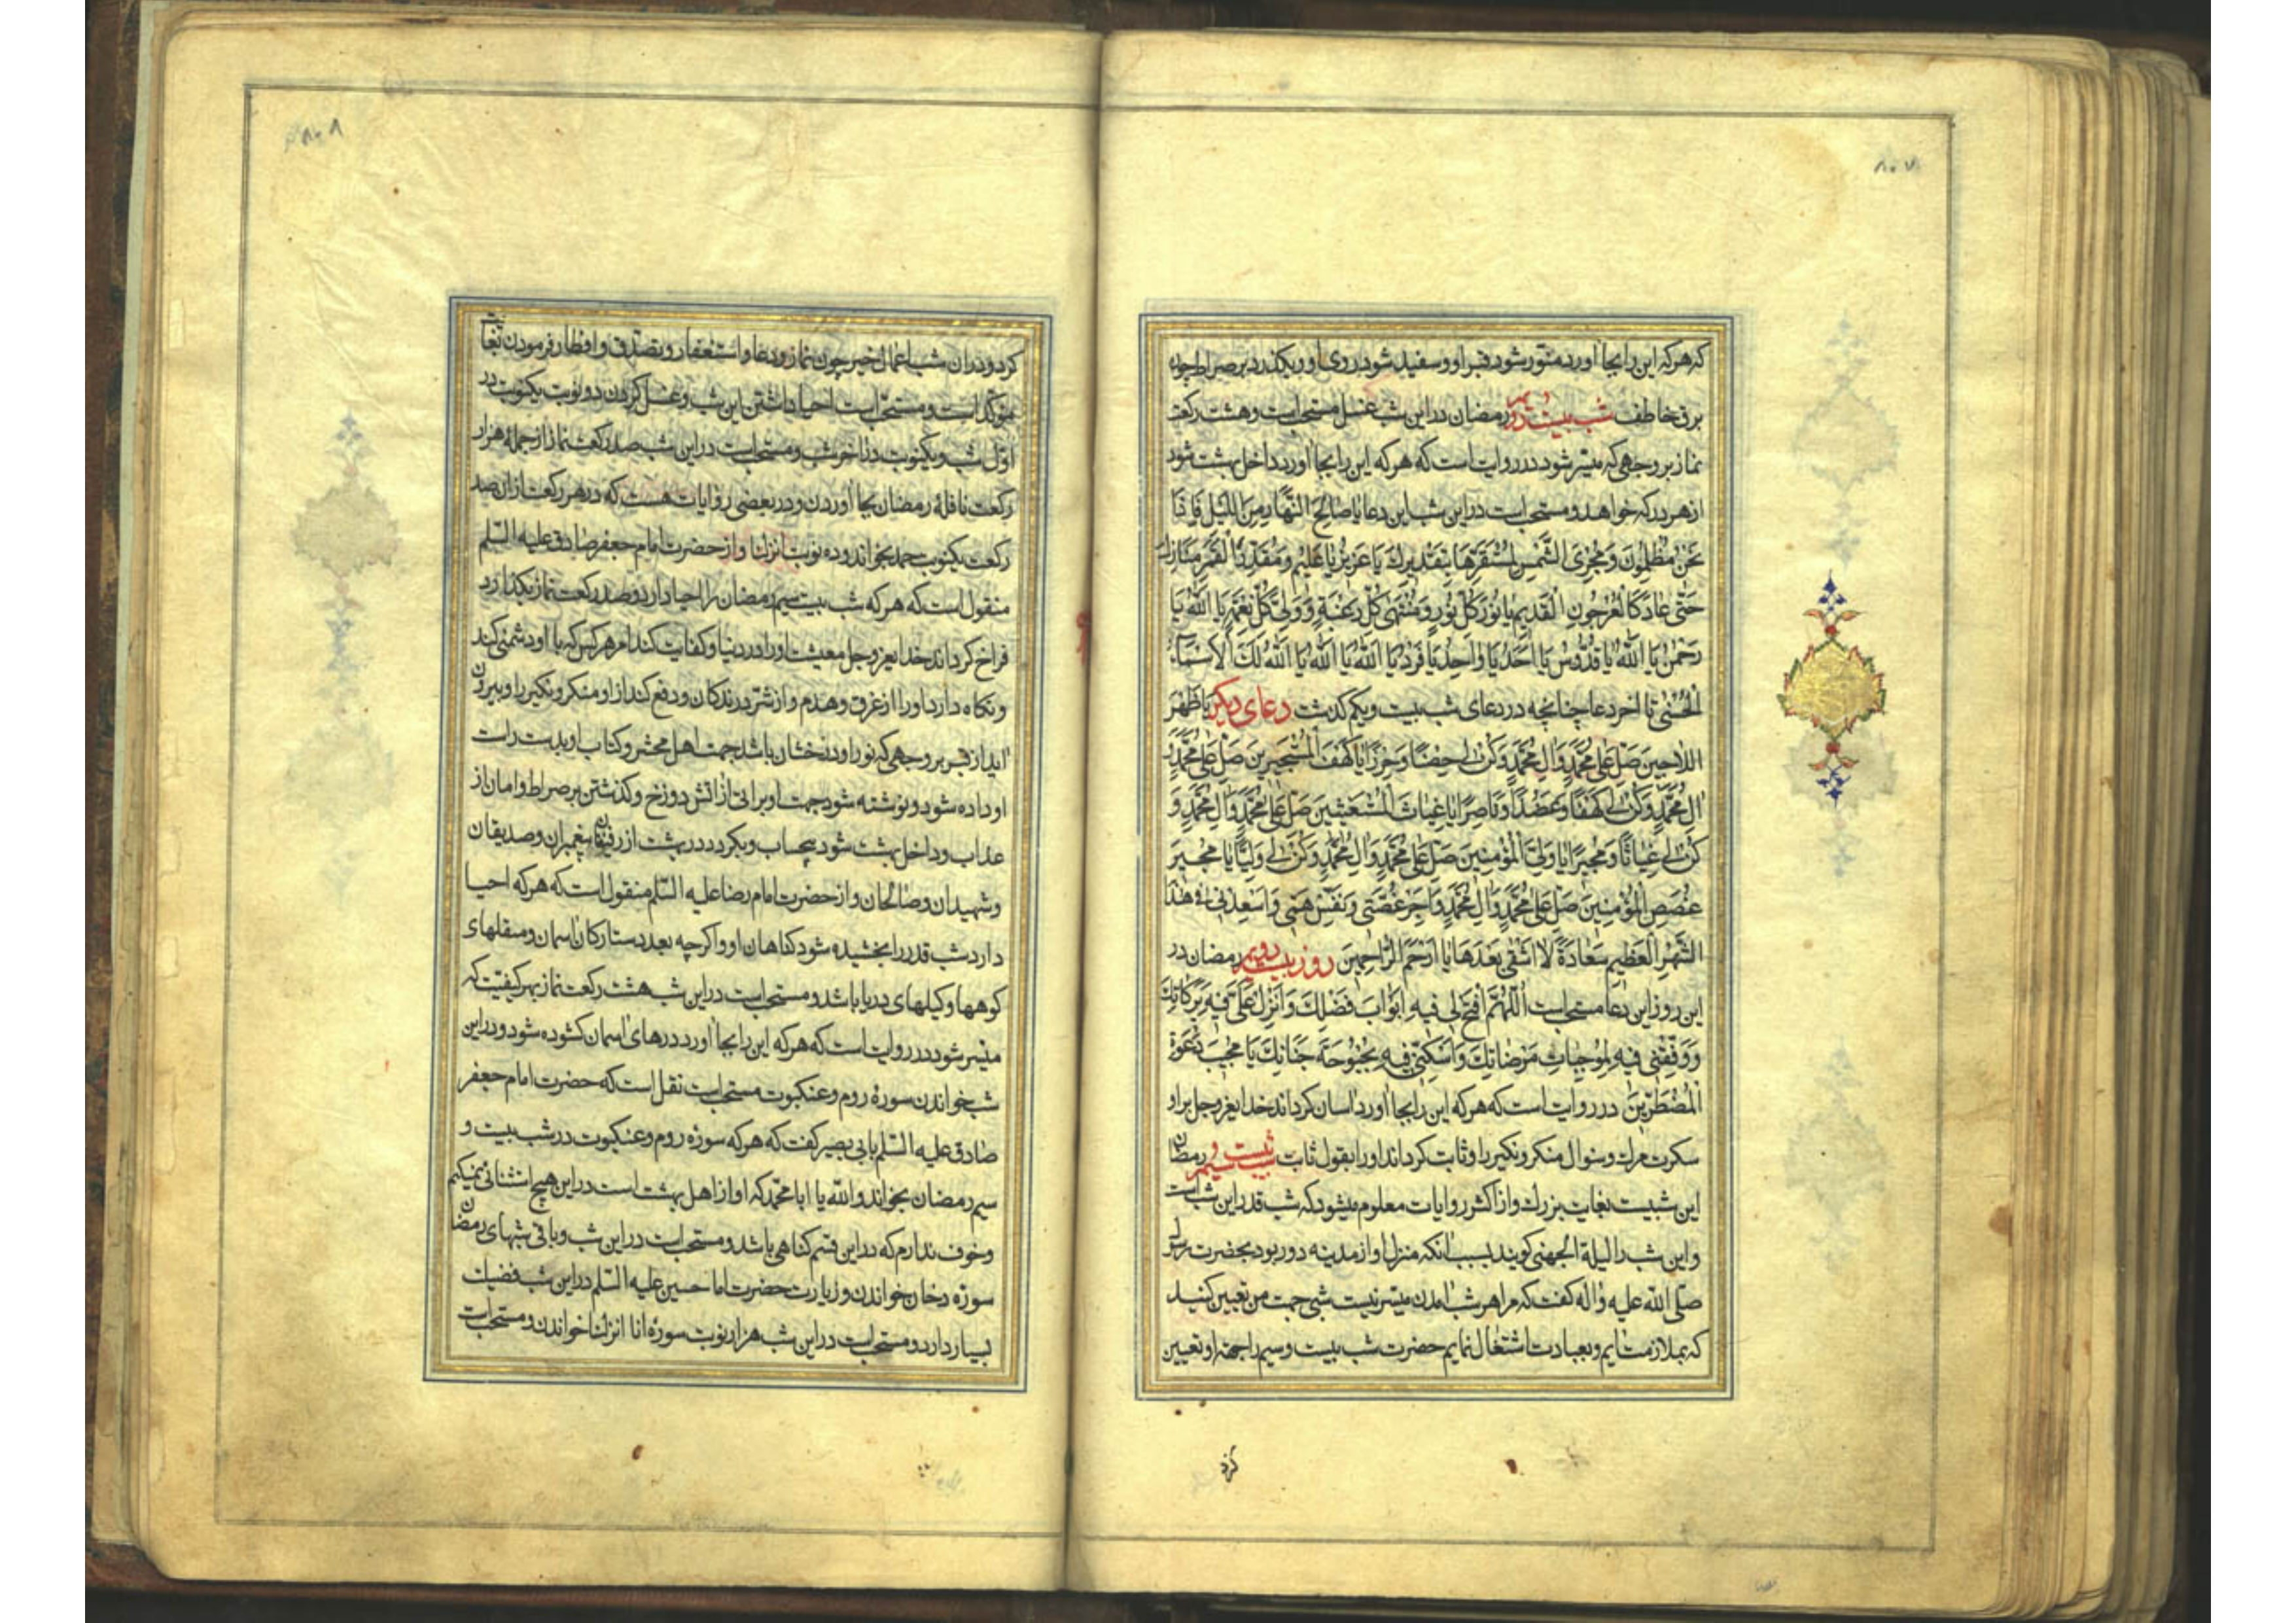 ۸۰۷
که هرکه این را بجا آورد منوّر شود قبر او و سفید شود روی او و بگذرد بر صراط چون
برق خاطف شب بیست دویم رمضان در این شب غسل مستحب است و هشت رکعت
نماز بر وجهی که میسّر شود در روایت است که هرکه این را بجا آورد داخل بهشت شود
از هر در که خواهد و مستحب است در این شب این دعا یا صَالِخَ النَّهَارِ مِنَ اللَّیْلِ فَاِذَا
نَحْنُ مُظْلِمُونَ وَ مُجْرِیَ الشَّمْسِ لِمُسْتَقَرِّهَا بِتَقْدِیرِكَ یَا عَزِیزُ یَا عَلِیمُ وَ مُقَدِّرَ الْقَمَرِ مَنَازِلَ
حَتّٰی عَادَ کَالْعُرْجُونِ الْقَدِیمِ یَا نُورَ کُلِّ نُورٍ وَ مُنْتَهٰی کُلِّ رَغْبَةٍ وَ وَلِیَّ کُلِّ نِعْمَةٍ یَا اللّٰهُ یَا
رَحْمٰنُ یَا اللّٰهُ یَا قُدُّوسُ یَا اَحَدُ یَا وَاحِدُ یَا فَرْدُ یَا اللّٰهُ یَا اللّٰهُ یَا اللّٰهُ لَكَ الْاَسْمَاءُ
الْحُسْنٰی تا آخر دعا چنانچه در دعای شب بیست و یکم گذشت دعای دیگر یَا ظَهْرَ
اللَّاجِینَ صَلِّ عَلٰی مُحَمَّدٍ وَ اٰلِ مُحَمَّدٍ وَ کُنْ لِی حِصْنًا وَ حِرْزًا یَا کَهْفَ الْمُسْتَجِیرِینَ صَلِّ عَلٰی مُحَمَّدٍ وَ
اٰلِ مُحَمَّدٍ وَ کُنْ لِی کَهْفًا وَ عَضُدًا وَ نَاصِرًا یَا غِیَاثَ الْمُسْتَغِیثِینَ صَلِّ عَلٰی مُحَمَّدٍ وَ اٰلِ مُحَمَّدٍ وَ
کُنْ لِی غِیَاثًا وَ مُجِیرًا یَا وَلِیَّ الْمُؤْمِنِینَ صَلِّ عَلٰی مُحَمَّدٍ وَ اٰلِ مُحَمَّدٍ وَ کُنْ لِی وَلِیًّا یَا مُجِیرَ
غُصَصِ الْمُؤْمِنِینَ صَلِّ عَلٰی مُحَمَّدٍ وَ اٰلِ مُحَمَّدٍ وَ اَجِرْ غُصَّتِی وَ نَفِّسْ هَمِّی وَ اَسْعِدْنِی فِی هٰذَا
الشَّهْرِ الْعَظِیمِ سَعَادَةً لَا اَشْقٰی بَعْدَهَا یَا اَرْحَمَ الرَّاحِمِینَ روز بیست دویم رمضان در
این روز این دعا مستحب است اَللّٰهُمَّ افْتَحْ لِی فِیهِ اَبْوَابَ فَضْلِكَ وَ اَنْزِلْ عَلَیَّ فِیهِ بَرَکَاتِكَ
وَ وَفِّقْنِی فِیهِ لِمُوجِبَاتِ مَرْضَاتِكَ وَ اَسْکِنِّی فِیهِ بُحْبُوحَةَ جَنَانِكَ یَا مُجِیبَ دَعْوَةِ
الْمُضْطَرِّینَ در روایت است که هرکه این را بجا آورد آسان گرداند خدایعزوجل بر او
سکرت مرك و سئوال منکر و نکیر را و ثابت گرداند او را بقول ثابت شب بیست و سیم رمضان
این شبیست بغایت بزرك و از اکثر روایات معلوم میشود که شب قدر این شب است
و این شب را لیلة الجهنی گویند بسبب آنکه منزل او از مدینه دور بود بحضرت رسول
صلّی اللّٰه علیه و اٰله گفت که مرا هر شب آمدن میسّر نیست شبی جهت من تعیین کنید
که بملازمت آیم و بعبادت اشتغال نمایم حضرت شب بیست و سیم را جهة او تعیین
کرد
۸۰۸
کرد و در آن شب اعمال خیر چون نماز و دعا و استغفار و تصدّق و افطار فرمودن بغایت
موکّد است و مستحب است احیا داشتن این شب و غسل کردن دو نوبت یکنوبت در
اوّل شب و یکنوبت در آخر شب و مستحب است در این شب صد رکعت نماز از جملهٔ هزار
رکعت نافلهٔ رمضان بجا آوردن و در بعضی روایات هست که در هر رکعت از آن صد
رکعت یکنوبت حمد بخواند و ده نوبت انزلنا و از حضرت امام جعفر صادق علیه السّلم
منقول است که هرکه شب بیست سیم رمضان را احیا دارد و صد رکعت نماز بگذارد
فراخ گرداند خدایعزوجل معیشت او را در دنیا و کفایت کند امر هرکس که با او دشمنی کند
و نگاه دارد او را از غرق و هدم و از شرّ درندگان و دفع کند از او منکر و نکیر را و بیرون
آید از قبر بر وجهی که نور او درخشان باشد جهت اهل محشر و کتاب او بدست راست
او داده شود و نوشته شود جهت او براتی از آتش دوزخ و گذشتن بر صراط و امان از
عذاب و داخل بهشت شود بیحساب و بگردد در بهشت از رفیقان پیغمبران و صدیقان
و شهیدان و صالحان و از حضرت امام رضا علیه السّلم منقول است که هرکه احیا
دارد شب قدر را بخشیده شود گناهان او و اگرچه بعدد ستارکان آسمان و مثقلهای
کوهها و کیلهای دریا باشد و مستحب است در این شب هشت رکعت نماز بهر کیفیّت که
میّسر شود در روایت است که هرکه این را بجا آورد درهای آسمان گشوده شود و در این
شب خواندن سورهٔ روم و عنکبوت مستحب است نقل است که حضرت امام جعفر
صادق علیه السّلم بابی بصیر گفت که هرکه سوره روم و عنکبوت در شب بیست و
سیم رمضان بخواند واللّٰه یا ابا محمّد که او از اهل بهشت است در این هیچ استثنائی نمیکنم
و خوف ندارم که در این قسم گناهی باشد و مستحب است در این شب و باقی شبهای رمضان
سورّه دخان خواندن و زیارت حضرت امام حسین علیه السّلم در این شب فضیلت
بسیار دارد و مستحب است در این شب هزار نوبت سورهٔ انا انزلنا خواندن و مستحب است